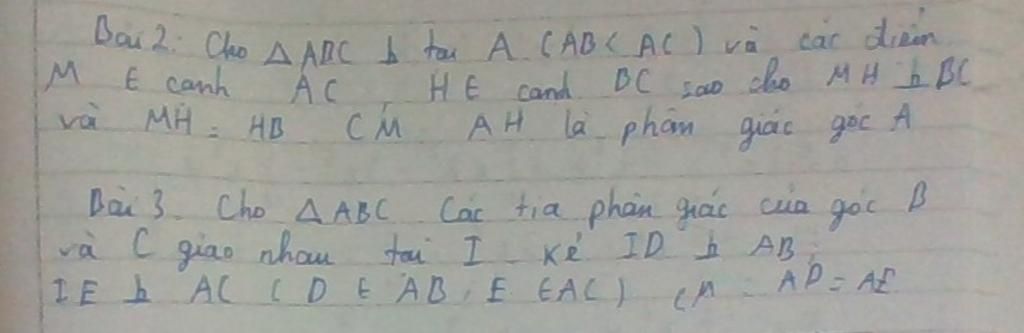 Bài 2: Cho △ABC ⊥ tại A (AB < AC) và các điểm
M ∈ cạnh AC, H ∈ cạnh BC sao cho MH ⊥ BC
và MH = HB CM AH là phân giác góc A
Bài 3 Cho △ABC Các tia phân giác của góc B
và C giao nhau tại I. Kẻ ID ⊥ AB,
IE ⊥ AC (D ∈ AB, E ∈ AC) CM: AD = AE